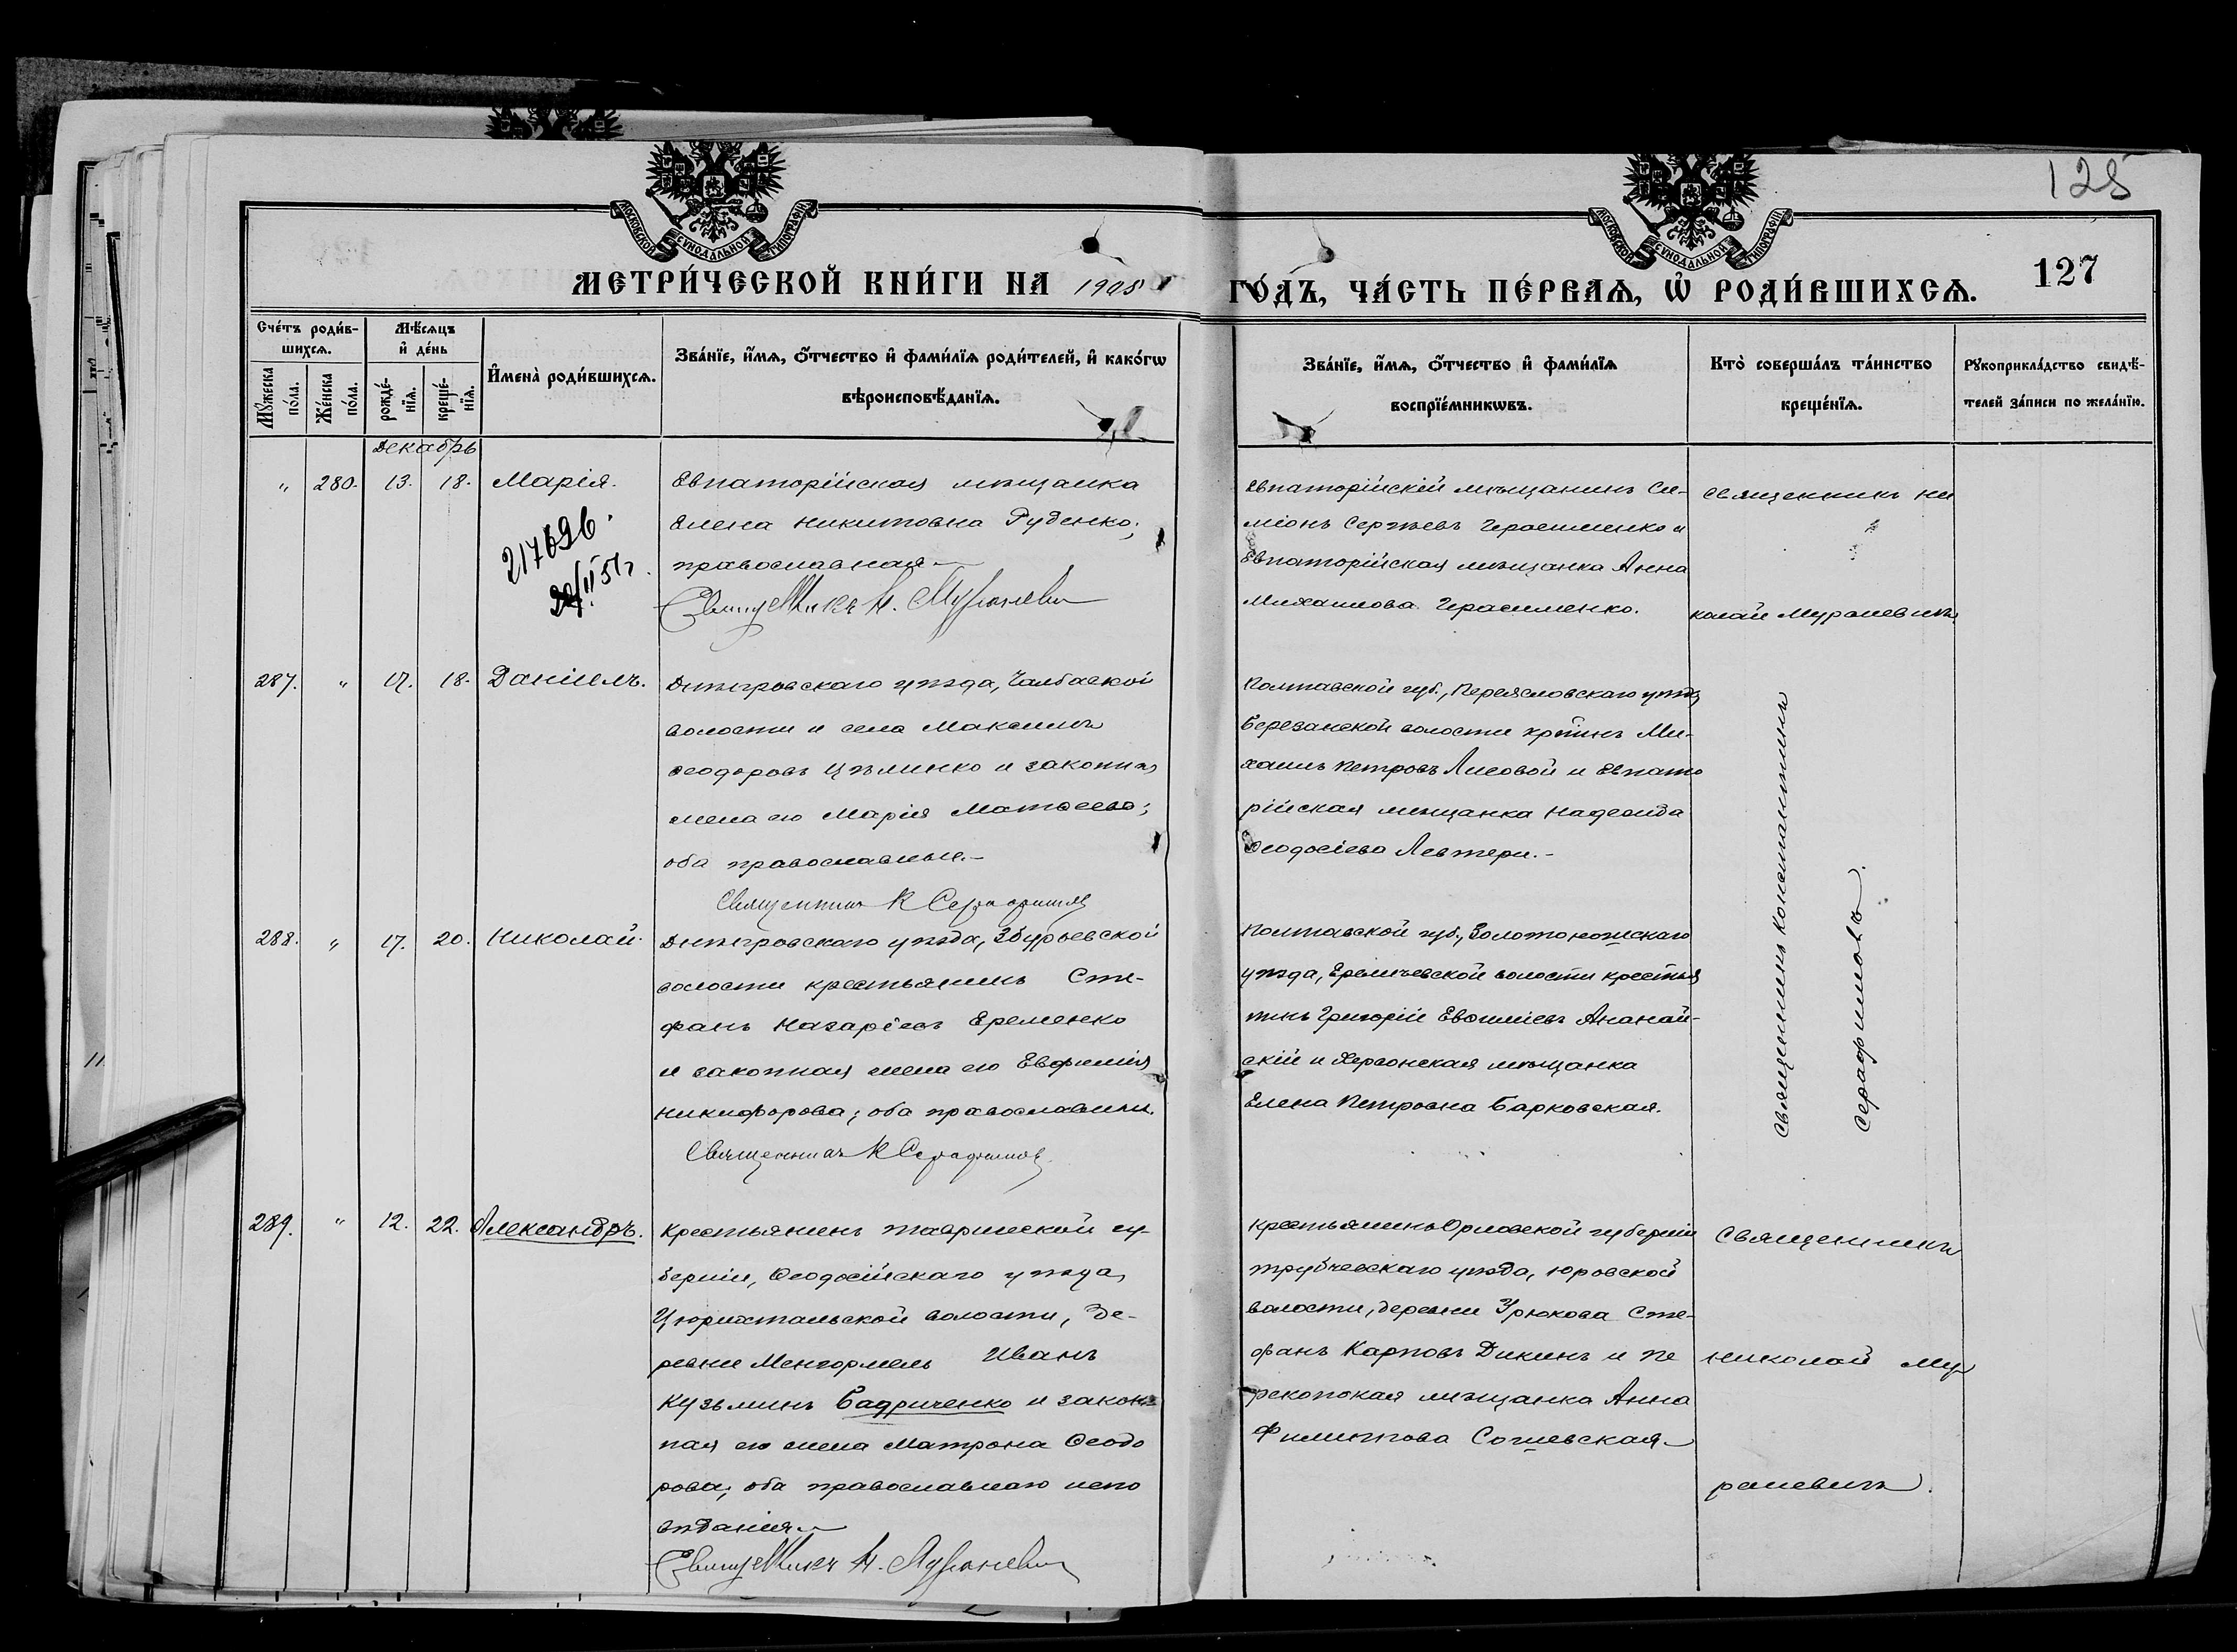 125
МОСКОВСКОЙ СѴНОДАЛЬНОЙ ТИПОГРАФІИ
МОСКОВСКОЙ СѴНОДАЛЬНОЙ ТИПОГРАФІИ
МЕТРИ́ЧЕСКОЙ КНИ́ГИ НА 1908
ГО́ДЪ, ЧА́СТЬ ПЕ́РВАѦ, Ѡ҆ РОДИ́ВШИХСѦ.
127
Сче́тъ роди́в-
шихсѧ.
Мꙋ́жеска
по́ла.
Же́нска
по́ла.
Мѣ́сѧцъ
и҆ де́нь
рожде́-
нїѧ.
креще́-
нїѧ.
И҆мена̀ роди́вшихсѧ.
Зва́нїе, и҆́мѧ, ѻ҆́тчество и҆ фами́лїѧ роди́телей, и҆ како́гѡ
вѣроисповѣ́данїѧ.
Зва́нїе, и҆́мѧ, ѻ҆́тчество и҆ фами́лїѧ
воспрїе́мникѡвъ.
Кто̀ соверша́лъ та́инство
креще́нїѧ.
Рꙋкоприкла́дство свидѣ́-
телей за́писи по жела́нїю.
Декабрь
" 280. 13. 18. Марія.
217696.
II 51г.
Евпаторійская мѣщанка
Елена Никитовна Руденко;
православная
Священникъ Н. Муралевич
Евпаторійскій мѣщанинъ Си-
міонъ Сергѣевъ Герасименко и
Евпаторійская мѣщанка Анна
Михаилова Герасименко.
Священникъ Ни
колай Муралевичъ
287. " 17. 18. Даніилъ.
Днѣпровскаго уѣзда, Чалбаской
волости и села Максимъ
Ѳеодоровъ Цѣлинко и законная
жена его Марія Матѳеева;
оба православные.-
Священникъ К Серафимовъ
Полтавской губ., Переясловскаго уѣзд,
Березанской волости кр-нинъ Ми-
хаилъ Петровъ Лисовой и Евпато
рійская мѣщанка Надежда
Ѳеодосіева Левтери.-
Священникъ Константинъ
Серафимовъ.
288. " 17. 20. Николай.
Днѣпровскаго уѣзда, Збурьевской
волости крестьянинъ Сте-
фанъ Назаріевъ Еременко
и законная жена его Евфимія
Никифорова; оба православны.
Священникъ К Серафимовъ
Полтавской губ., Золотоношскаго
уѣзда, Еремѣевской волости крестья
нинъ Григорій Евѳиміевъ Ананай-
скій и Херсонская мѣщанка
Елена Петровна Барковская.
289. " 12. 22. Александръ.
Крестьянинъ Таврической гу-
берніи, Ѳеодосійскаго уѣзда,
Цюрихтальской волости, де-
ревни Менгермень Иванъ
Кузьминъ Бадриченко и закон-
ная его жена Матрона Ѳеодо
рова; оба православнаго испо
вѣданія
Священникъ Н. Муралевич
Крестьянинъ Орловской губерніи
Трубчевскаго уѣзда, Юровской
волости, деревни Урюкова Сте-
фанъ Карповъ Дикинъ и Пе
рекопская мѣщанка Анна
Филиппова Сошевская
Священникъ
Николай Му
ралевичъ.